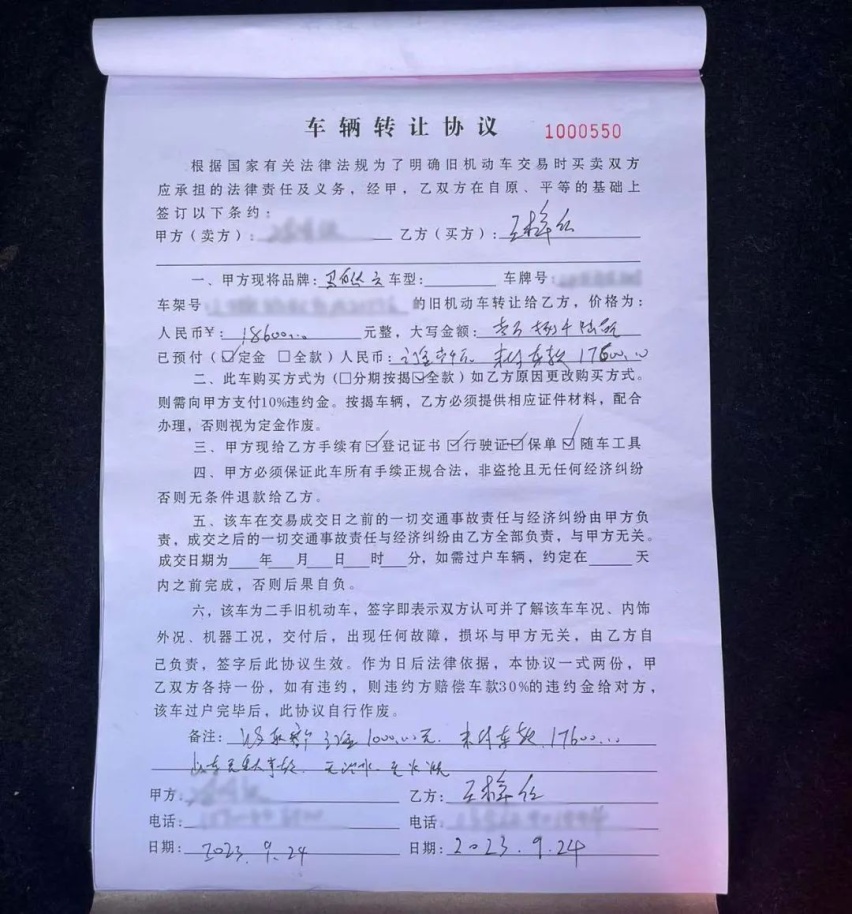 车辆转让协议 1000550
根据国家有关法律法规为了明确旧机动车交易时买卖双方
应承担的法律责任及义务，经甲，乙双方在自原、平等的基础上
签订以下条约：
甲方（卖方）： 乙方（买方）：
一、甲方现将品牌： 车型： 车牌号：
车架号 的旧机动车转让给乙方，价格为：
人民币￥：18600.00元整，大写金额：壹万捌仟陆佰
已预付（☑定金 □全款）人民币： 未付车款 17600.00
二、此车购买方式为（□分期按揭☑全款）如乙方原因更改购买方式。
则需向甲方支付10%违约金。按揭车辆，乙方必须提供相应证件材料，配合
办理，否则视为定金作废。
三、甲方现给乙方手续有☑登记证书 ☑行驶证☑保单 ☑随车工具
四、甲方必须保证此车所有手续正规合法，非盗抢且无任何经济纠纷
否则无条件退款给乙方。
五、该车在交易成交日之前的一切交通事故责任与经济纠纷由甲方负
责，成交之后的一切交通事故责任与经济纠纷由乙方全部负责，与甲方无关。
成交日期为 年 月 日 时 分，如需过户车辆，约定在 天
内之前完成，否则后果自负。
六，该车为二手旧机动车，签字即表示双方认可并了解该车车况、内饰
外况、机器工况，交付后，出现任何故障，损坏与甲方无关，由乙方自
己负责，签字后此协议生效。作为日后法律依据，本协议一式两份，甲
乙双方各持一份，如有违约，则违约方赔偿车款30%的违约金给对方，
该车过户完毕后，此协议自行作废。
备注： 定金1000.00元. 未付车款.17600.00
此车无重大事故. 无泡水. 无火烧
甲方： 乙方：
电话： 电话
日期：2023.9.24 日期：2023.9.24